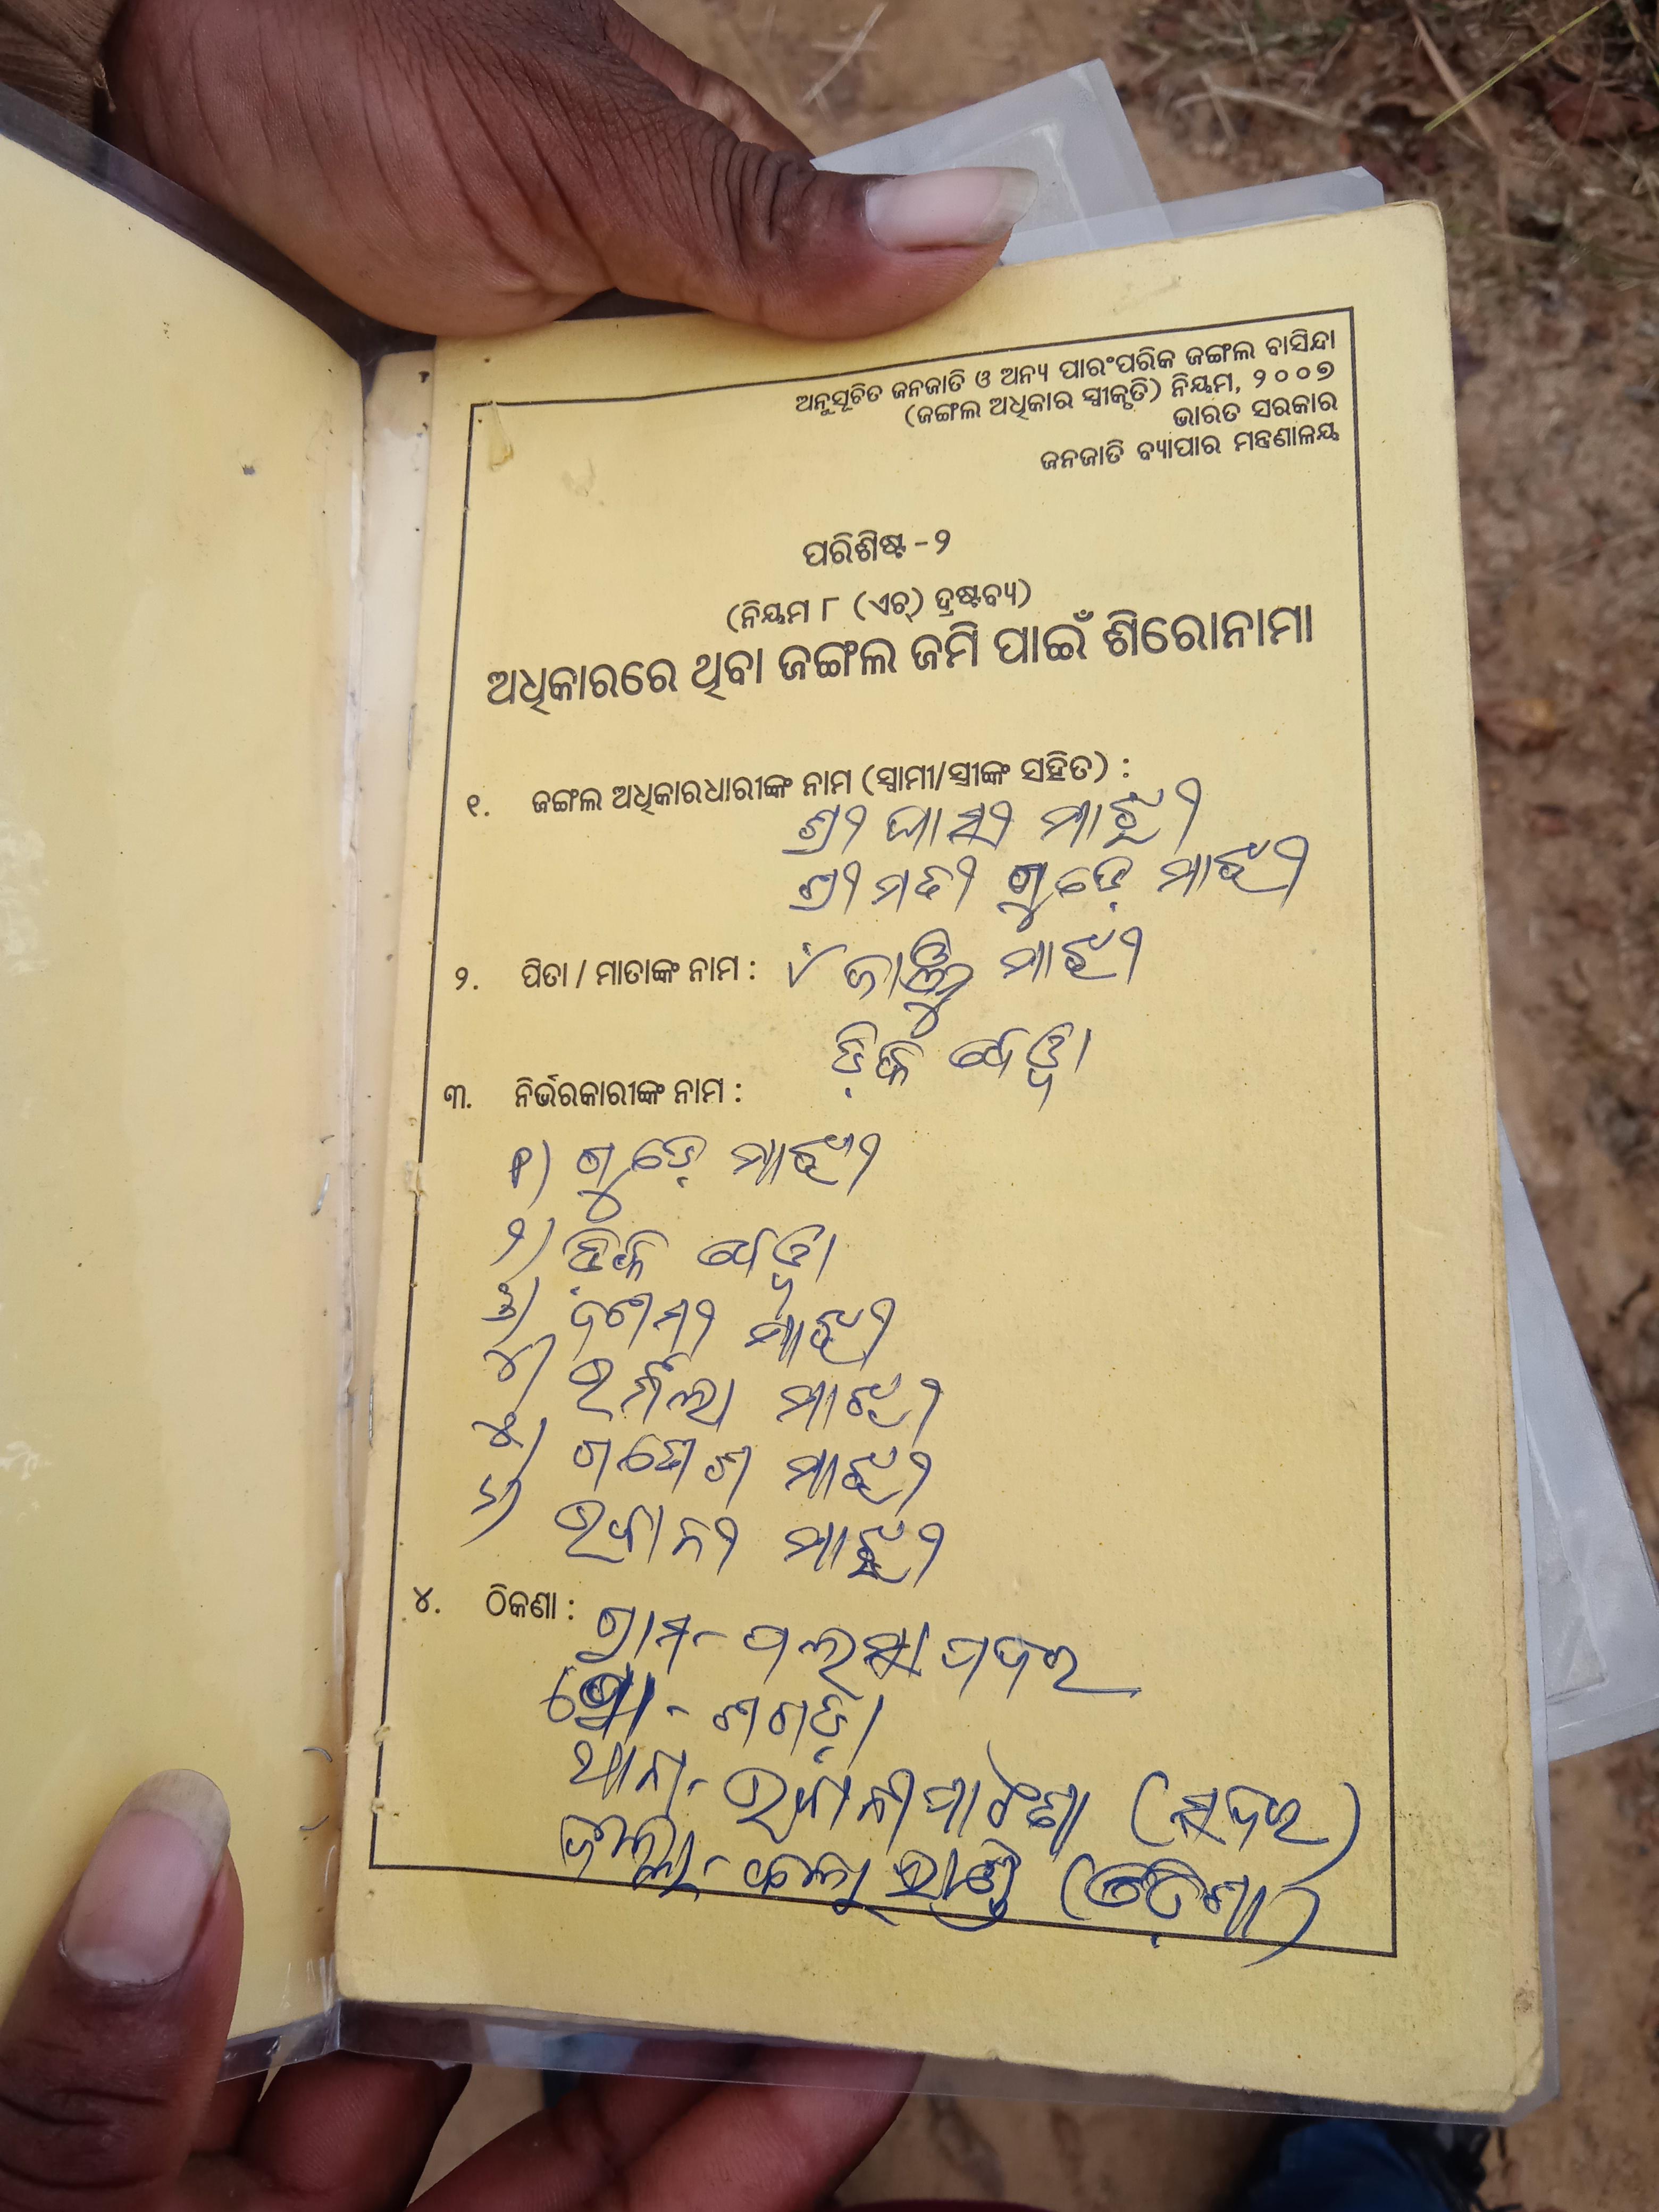 ଅନୁସୂଚିତ ଜନଜାତି ଓ ଅନ୍ୟ ପାରଂପରିକ ଜଙ୍ଗଲ ବାସିନ୍ଦା
(ଜଙ୍ଗଲ ଅଧିକାର ସ୍ୱୀକୃତି) ନିୟମ, ୨୦୦୭
ଭାରତ ସରକାର
ଜନଜାତି ବ୍ୟାପାର ମନ୍ତ୍ରଣାଳୟ
ପରିଶିଷ୍ଟ - ୨
(ନିୟମ ୮ (ଏଚ୍) ଦ୍ରଷ୍ଟବ୍ୟ)
ଅଧିକାରରେ ଥିବା ଜଙ୍ଗଲ ଜମି ପାଇଁ ଶିରୋନାମା
୧. ଜଙ୍ଗଲ ଅଧିକାରଧାରୀଙ୍କ ନାମ (ସ୍ୱାମୀ/ସ୍ତ୍ରୀଙ୍କ ସହିତ) :
ଶ୍ରୀ ଘାସୀ ମାଝୀ
ଶ୍ରୀମତୀ ଗୁଡ଼େ ମାଝୀ
୨. ପିତା / ମାତାଙ୍କ ନାମ : ମାଝୀ
୩. ନିର୍ଭରକାରୀଙ୍କ ନାମ :
୧) ଗୁଡ଼େ ମାଝୀ
୨)
୩) ମାଝୀ
୪) ମାଝୀ
୫) ଗଣେଶ ମାଝୀ
୬) ମାଝୀ
୪. ଠିକଣା : ଗ୍ରାମ-
ପୋ- ଶଗଡ଼ା
ଥାନା- ଭବାନୀପାଟଣା (ସଦର)
ଜିଲ୍ଲା- କଳାହାଣ୍ଡି (ଓଡ଼ିଶା)